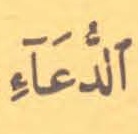 ٱلدُّعَآءِ